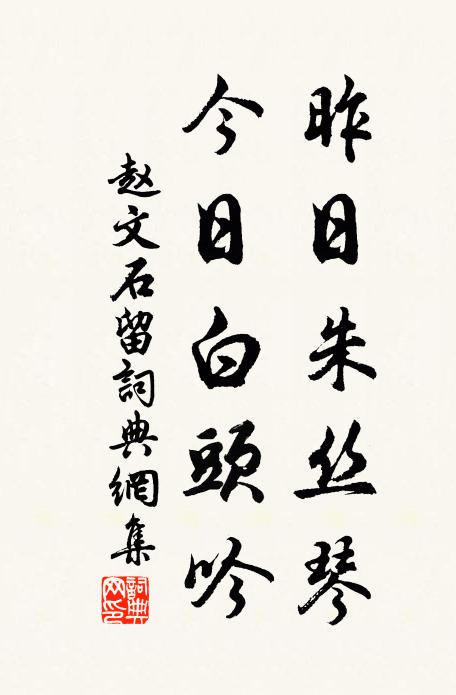 昨日朱丝琴
今日白頭吟
赵文石留詞典網集
詞典网印